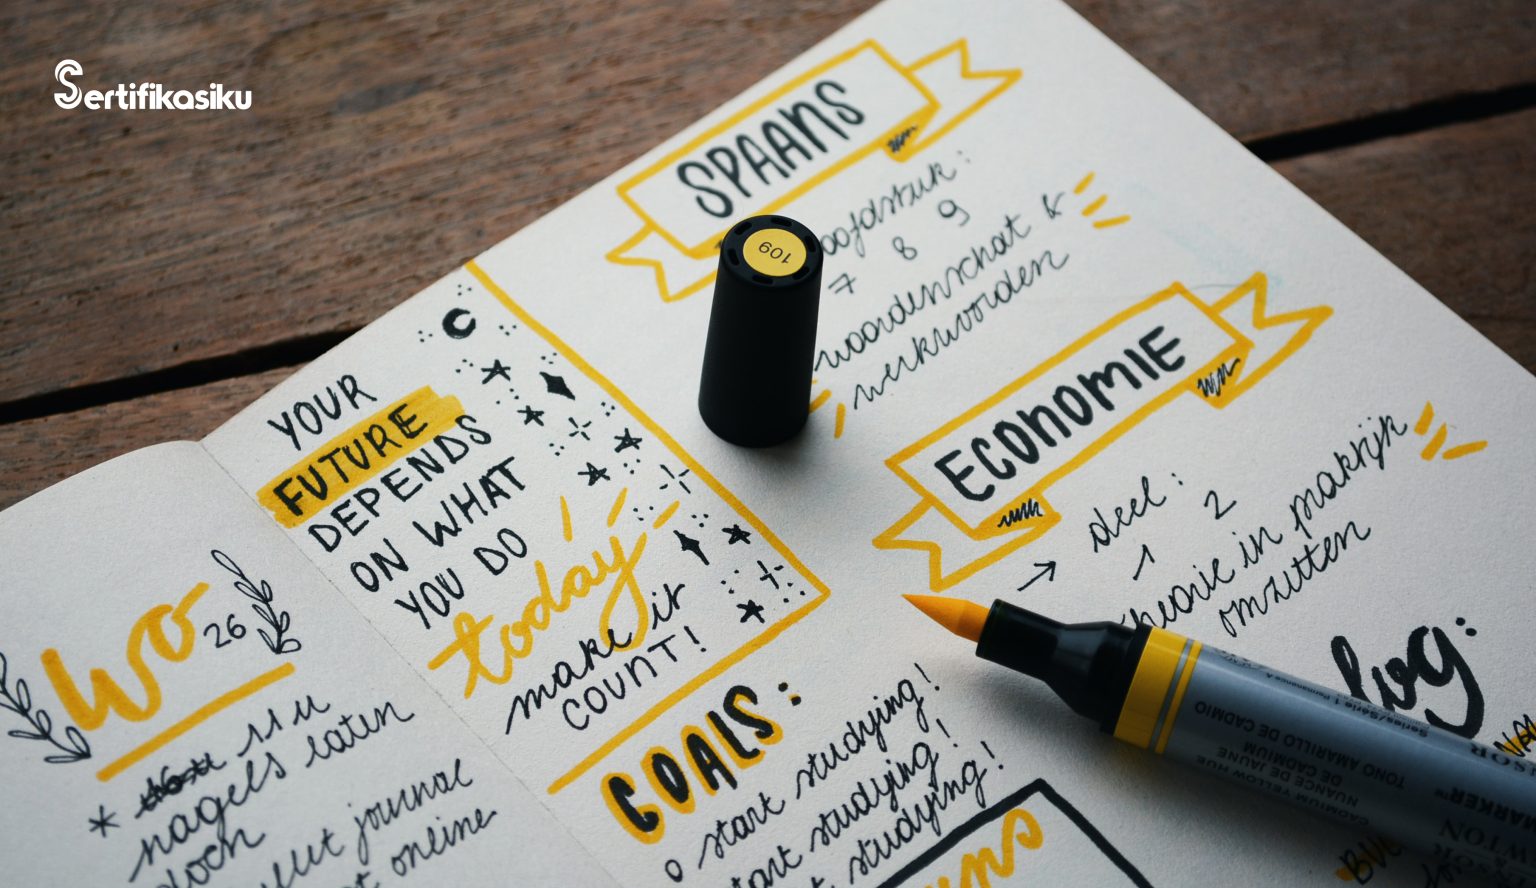 Sertifikasiku
SPAANS
7 8 9
woordenschat &
werkwoorden
ECONOMIE
→ deel:
1 2
theorie in praktijk
omzetten
YOUR
FUTURE
DEPENDS
ON WHAT
YOU DO
today
make it
COUNT!
GOALS:
o start studying!
start studying!
studying!
wo
26
* 11 u
nagels laten
doen
bullet journal
online
log:
109
Series/Série 1 Permanence A
CADMIUM YELLOW HUE
NUANCE DE JAUNE
DE CADMIUM
TONO AMARILLO DE CADMIO
MARKER™